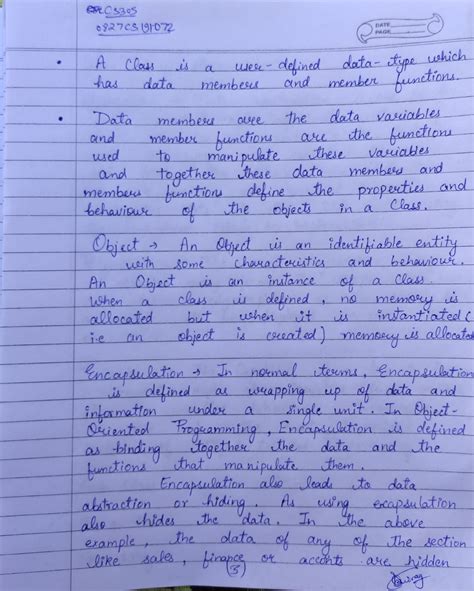 CS305
0827CS191072
DATE
PAGE
• A Class is a user-defined data-type which
has data members and member functions.
• Data members are the data variables
and member functions are the functions
used to manipulate these variables
and together these data members and
members functions define the properties and
behaviour of the objects in a Class.
Object → An Object is an identifiable entity
with some characteristics and behaviour.
An Object is an instance of a Class.
When a class is defined, no memory is
allocated but when it is instantiated (
i.e an object is created) memory is allocated
Encapsulation → In normal terms, Encapsulation
is defined as wrapping up of data and
information under a single unit. In Object-
Oriented Programming, Encapsulation is defined
as binding together the data and the
functions that manipulate them.
Encapsulation also leads to data
abstraction or hiding. As using encapsulation
also hides the data. In the above
example, the data of any of the section
like sales, finance or accounts are hidden
(3)